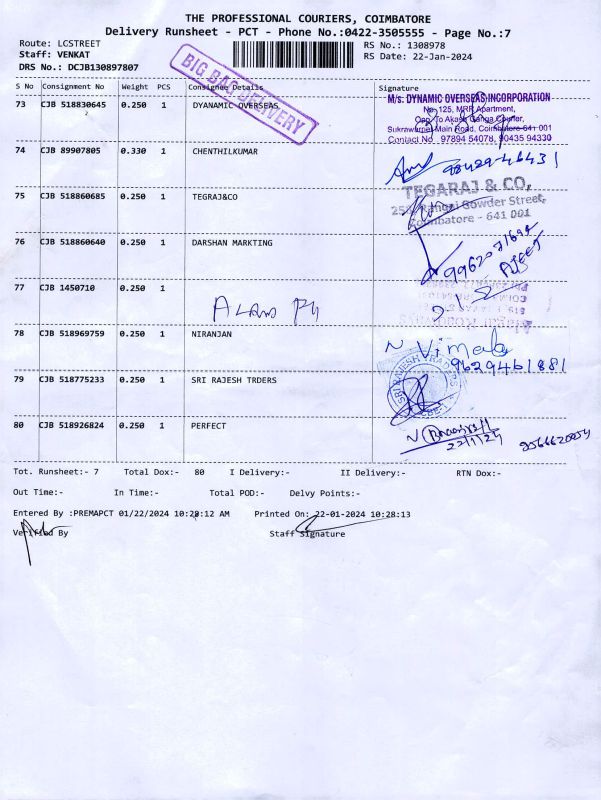 THE PROFESSIONAL COURIERS, COIMBATORE
Delivery Runsheet - PCT - Phone No.:0422-3505555 - Page No.:7
Route: LGSTREET
RS No.: 1308978
Staff: VENKAT
RS Date: 22-Jan-2024
DRS No.: DCJB130897807
BIG BAG DELIVERY
S No Consignment No Weight PCS Consignee Details Signature
73 CJB 518830645 0.250 1 DYANAMIC OVERSEAS
M/s: DYNAMIC OVERSEAS INCORPORATION
No 125, MRR Apartment,
Opp. To Akash Ganga Courier,
Sukrawarpet Main Road, Coimbatore-641 001
Contact No. 97894 54078, 90435 94330
74 CJB 89907805 0.330 1 CHENTHILKUMAR
75 CJB 518860685 0.250 1 TEGRAJ&CO
TEGARAJ & CO,
Gowder Street,
Coimbatore - 641 001
76 CJB 518860640 0.250 1 DARSHAN MARKTING
77 CJB 1450710 0.250 1
78 CJB 518969759 0.250 1 NIRANJAN
N Vimala
9629461881
79 CJB 518775233 0.250 1 SRI RAJESH TRDERS
SRI RAJESH TRADERS
80 CJB 518926824 0.250 1 PERFECT
22/1/24
Tot. Runsheet:- 7 Total Dox:- 80 I Delivery:- II Delivery:- RTN Dox:-
Out Time:- In Time:- Total POD:- Delvy Points:-
Entered By :PREMAPCT 01/22/2024 10:28:12 AM Printed On: 22-01-2024 10:28:13
Verified By Staff Signature